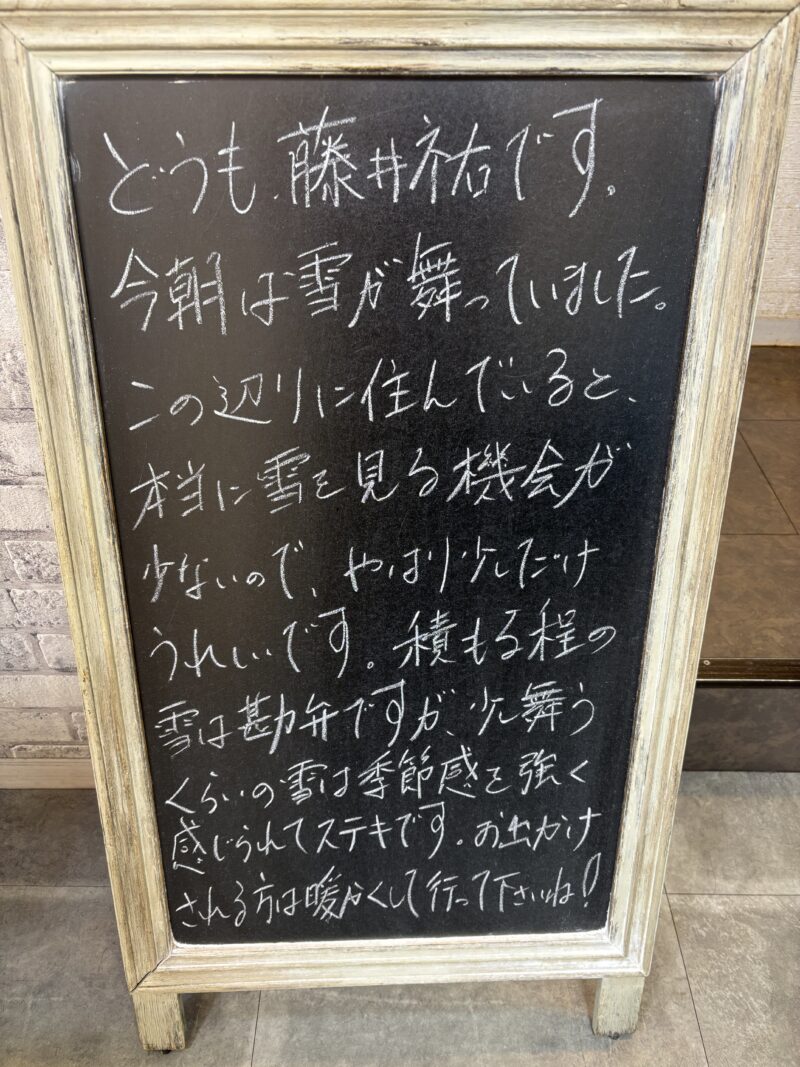 どうも、藤井祐です。
今朝は雪が舞っていました。
この辺りに住んでいると、
本当に雪を見る機会が
少ないので、やはり少しだけ
うれしいです。積もる程の
雪は勘弁ですが、少し舞う
くらいの雪は季節感を強く
感じられてステキです。お出かけ
される方は暖かくして行って下さいね!